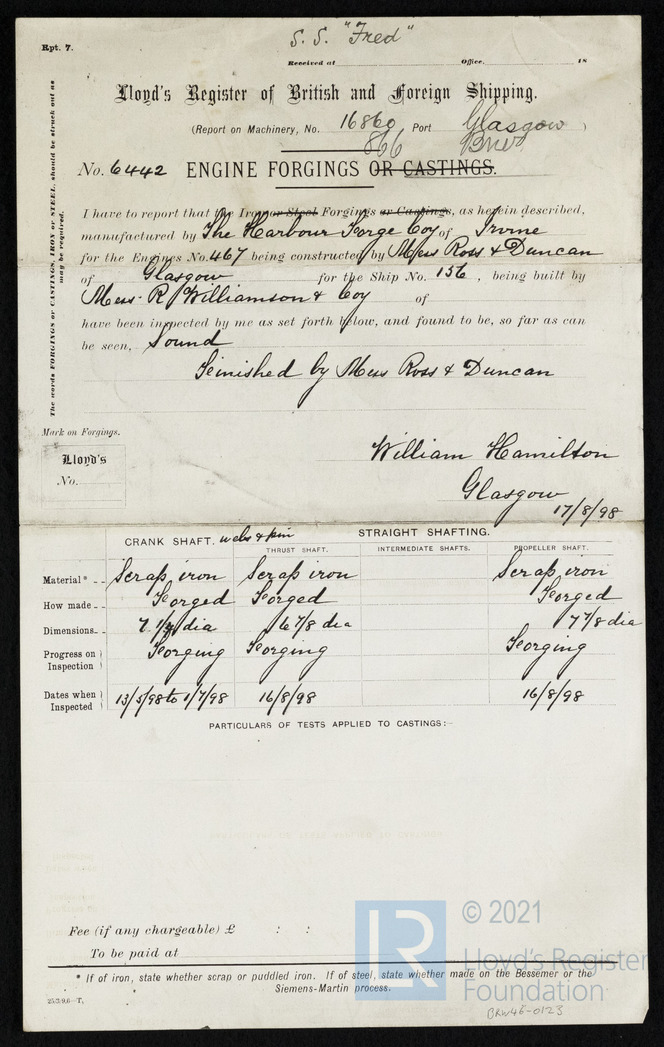 S. S. "Fred"
Rpt. 7.
Received at Office. 18
Lloyd's Register of British and Foreign Shipping.
(Report on Machinery, No. 16860 Port Glasgow )
866
No. 6442 ENGINE FORGINGS OR CASTINGS.
The words FORGINGS or CASTINGS, IRON or STEEL, should be struck out as
may be required.
I have to report that the Iron or Steel Forgings or Castings, as herein described,
manufactured by The Harbour Forge Coy of Irvine
for the Engines No. 467 being constructed by Mess Ross & Duncan
of Glasgow for the Ship No. 156 , being built by
Mess R Williamson & Coy of
have been inspected by me as set forth below, and found to be, so far as can
be seen, Sound
Feinished by Mess Ross & Duncan
Mark on Forgings.
Lloyd's
No.
William Hamilton
Glasgow
17/8/98
CRANK SHAFT. webs & pin STRAIGHT SHAFTING.
THRUST SHAFT. INTERMEDIATE SHAFTS. PROPELLER SHAFT.
Material* Scrap iron Scrap iron Scrap iron
How made Forged Forged Forged
Dimensions 7 1/4 dia 6 7/8 dia 7 7/8 dia
Progress on Inspection Forging Forging Forging
Dates when Inspected 13/5/98 to 1/7/98 16/8/98 16/8/98
PARTICULARS OF TESTS APPLIED TO CASTINGS:—
Fee (if any chargeable) £ : :
To be paid at
* If of iron, state whether scrap or puddled iron. If of steel, state whether made on the Bessemer or the
Siemens-Martin process.
25.3.96—T.
BRW46-0123
LR
© 2021
Lloyd's Register
Foundation